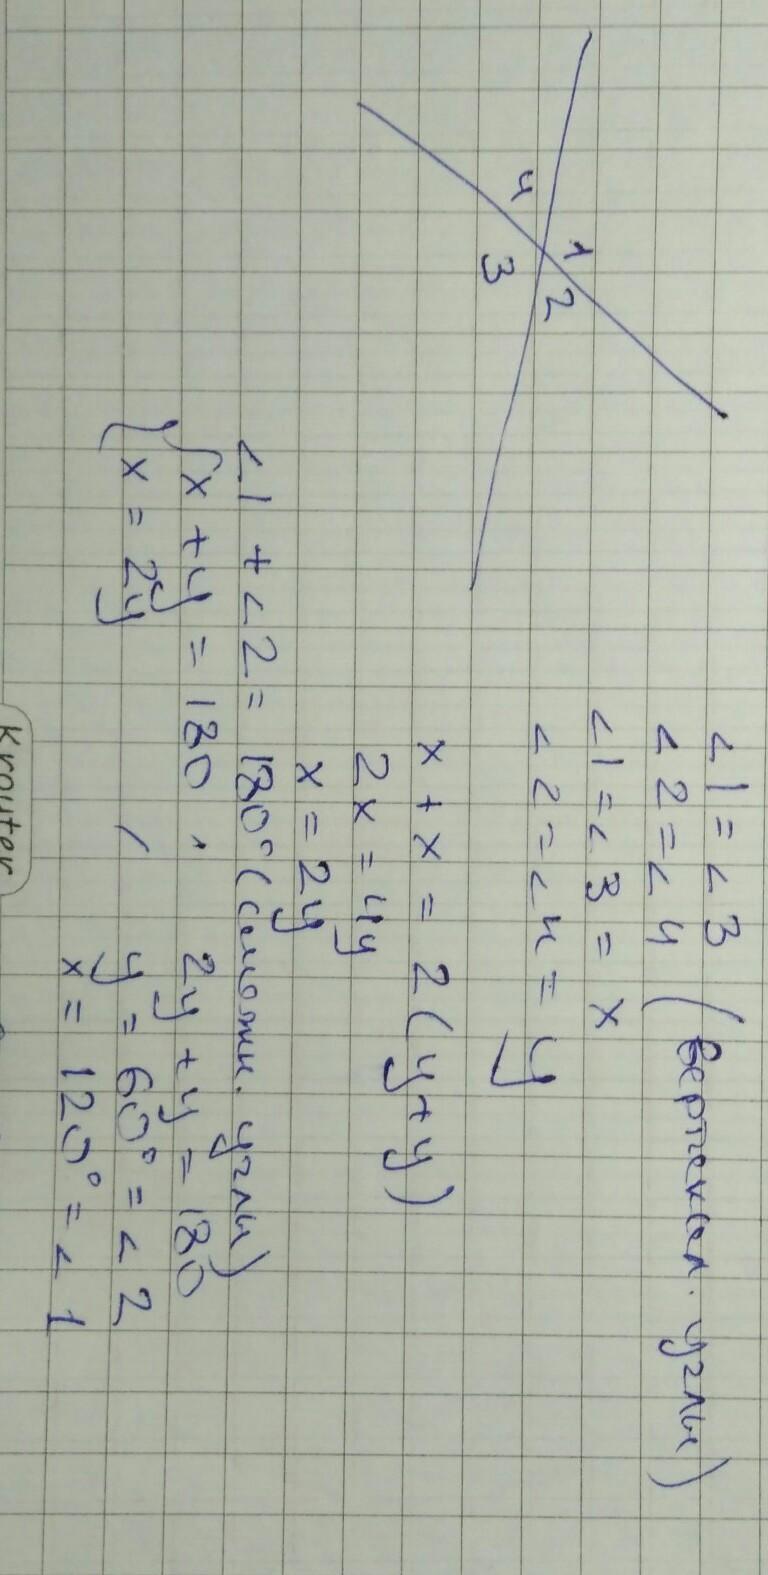 4
1
3
2
∠1 = ∠3
∠2 = ∠4 (вертикал. углы)
∠1 = ∠3 = x
∠2 = ∠4 = y
x + x = 2(y+y)
2x = 4y
x = 2y
∠1 + ∠2 = 180° (смежн. углы)
x + y = 180
2y + y = 180
x = 2y
y = 60° = ∠2
x = 120° = ∠1
Krouter